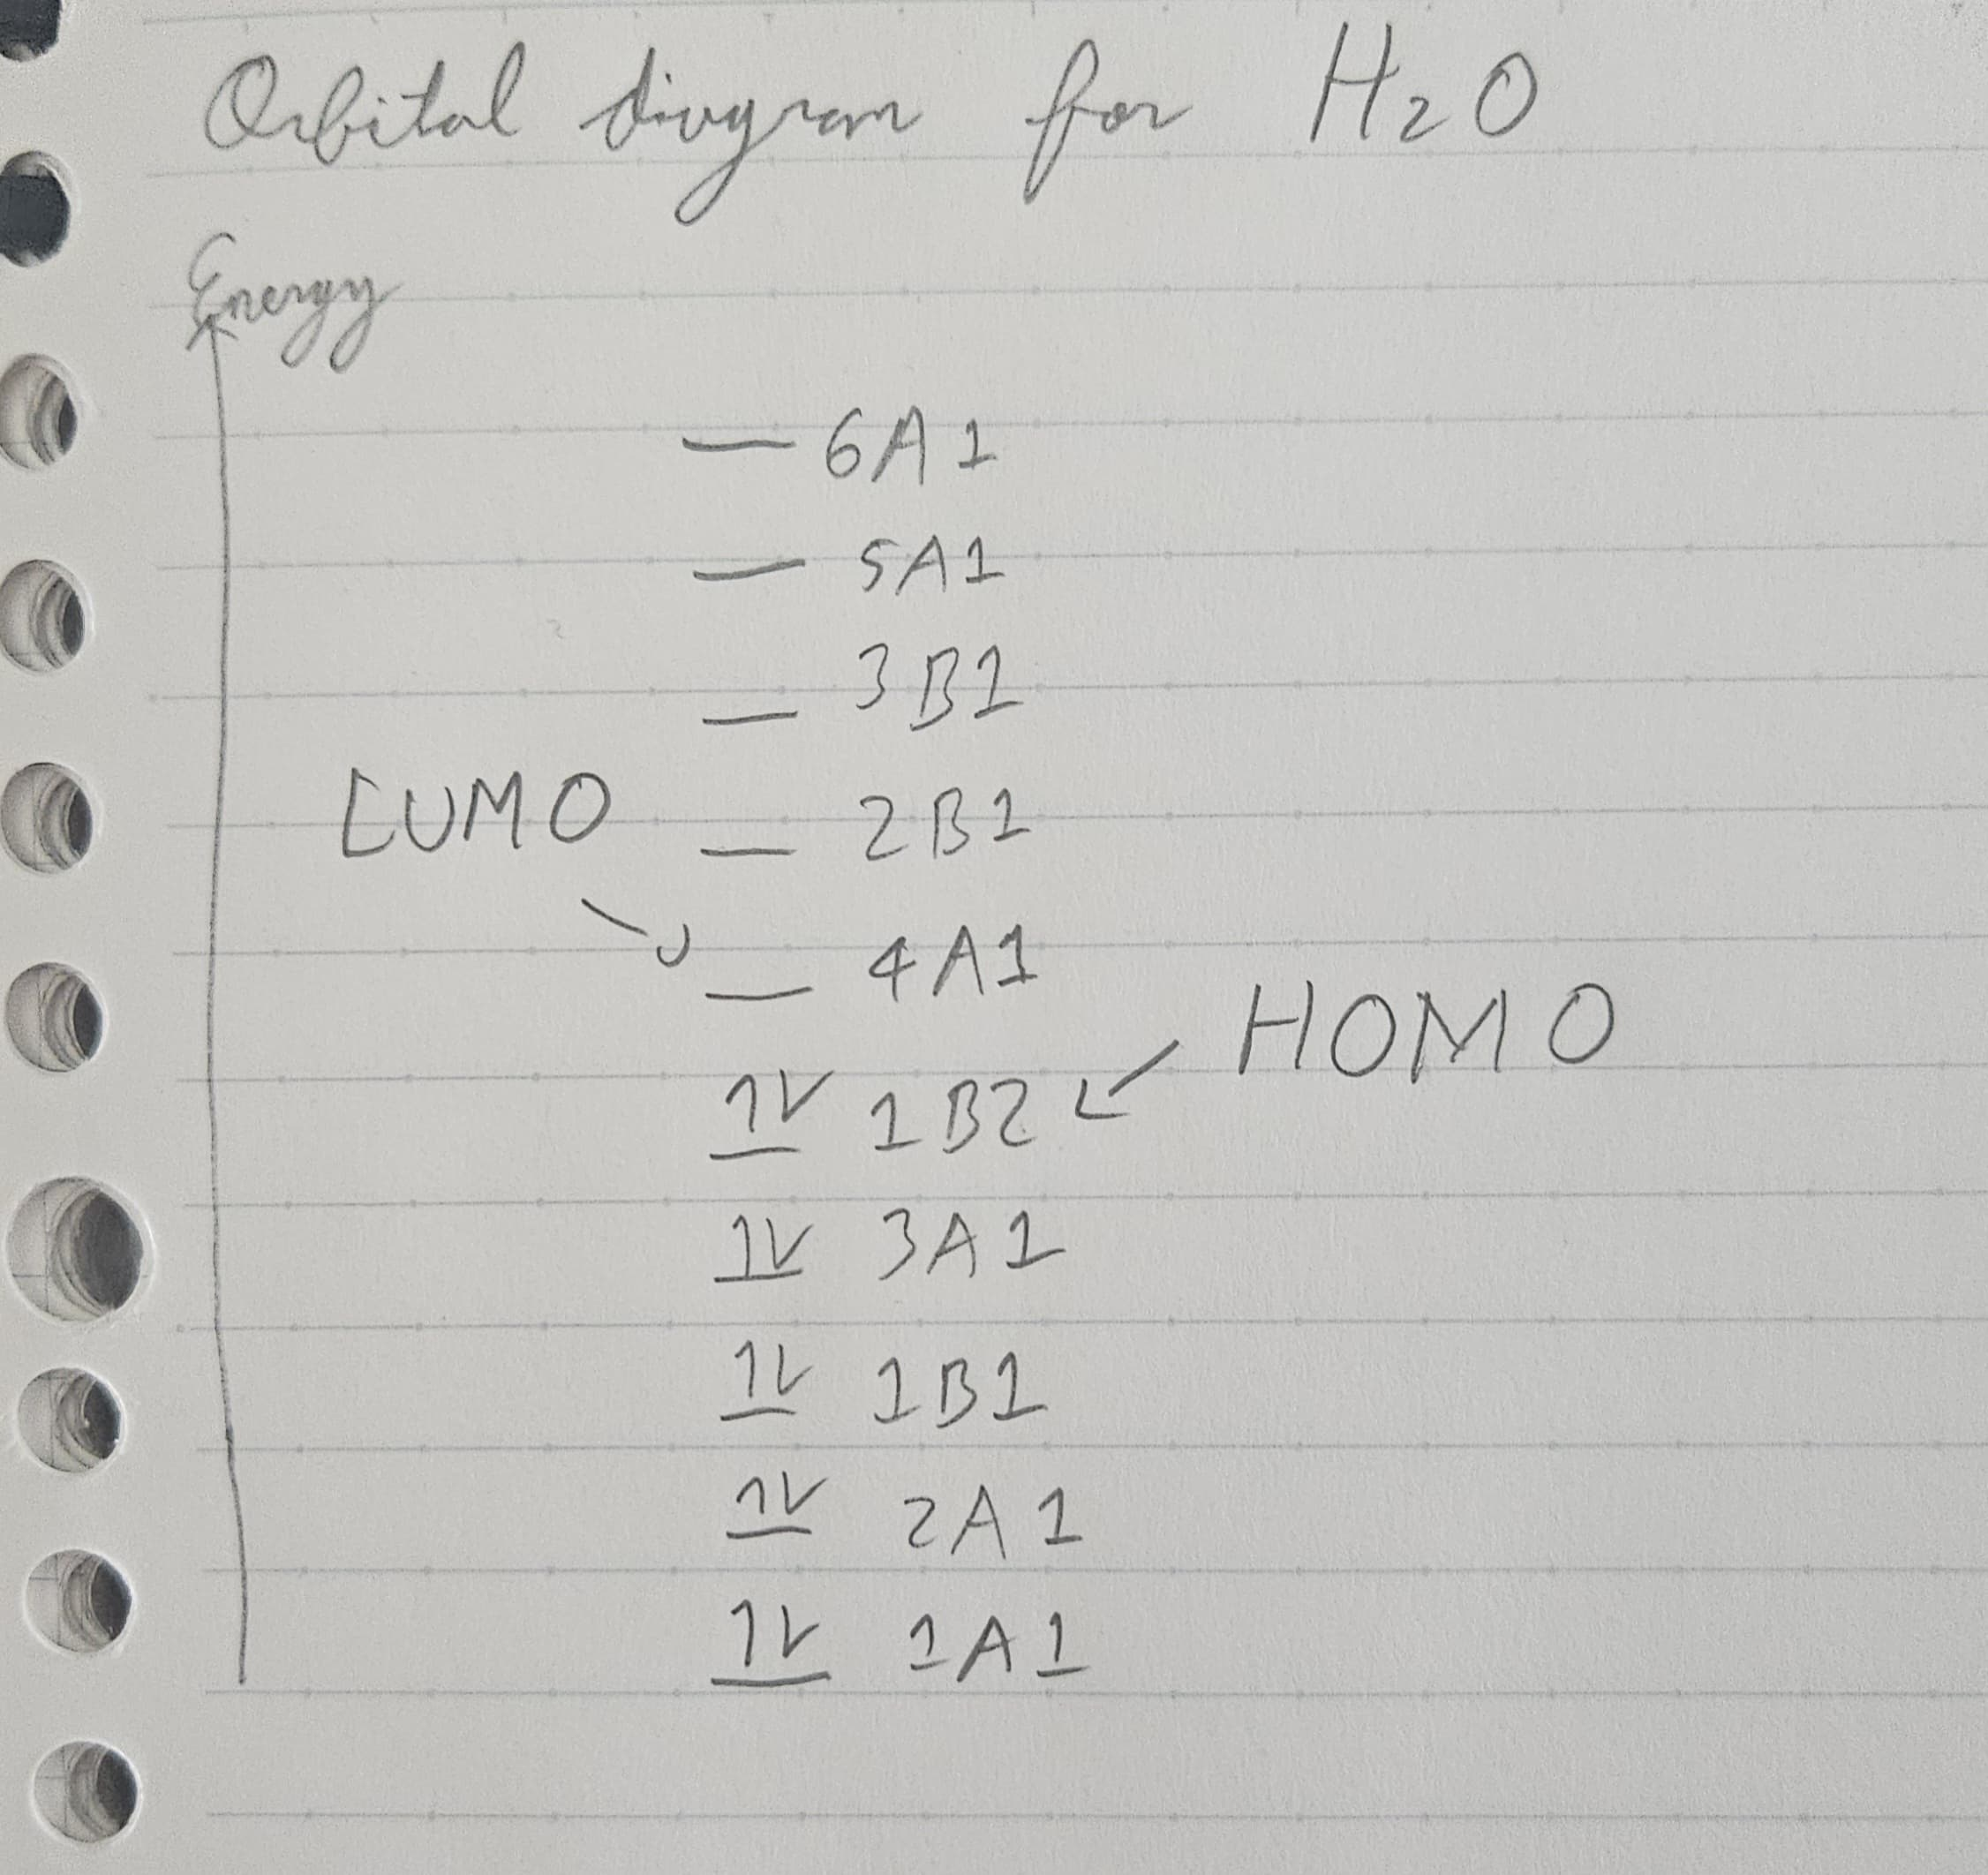 Orbital diagram for H2O
Energy
6A1
5A1
3B1
LUMO 2B1
4A1
HOMO
1B2
3A1
1B1
2A1
1A1